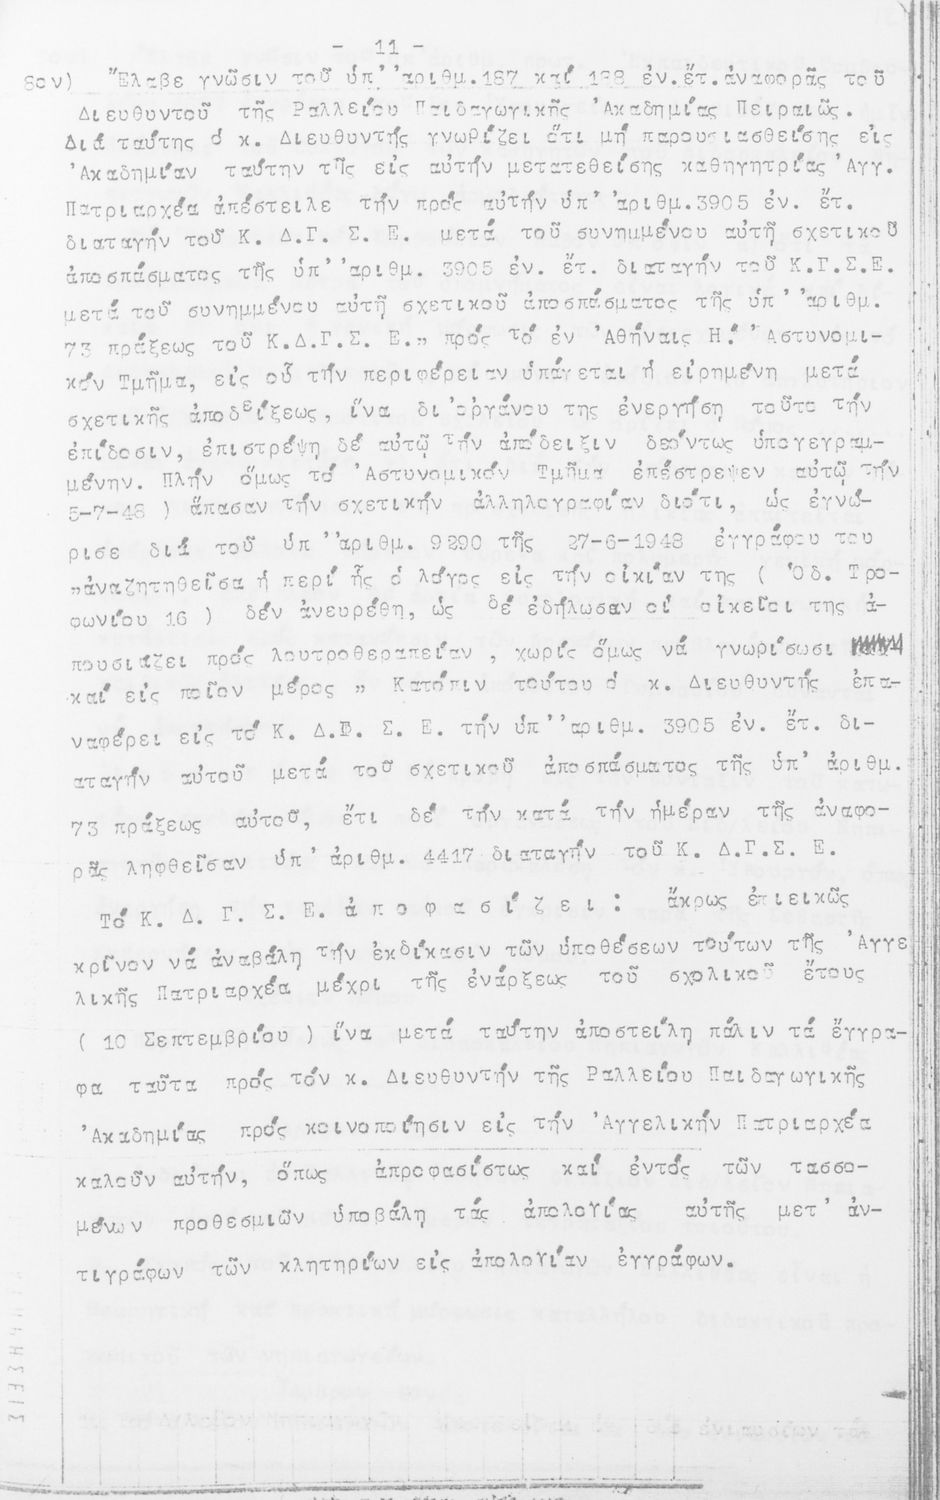 - 11 -
8ον) Ἔλαβε γνῶσιν τοῦ ὑπ' ἀριθμ.187 καί 188 ἐν.ἔτ.ἀναφορᾶς τοῦ
Διευθυντοῦ τῆς Ραλλείου Παιδαγωγικῆς 'Ακαδημίας Πειραιῶς.
Διά ταύτης ὁ κ. Διευθυντής γνωρίζει ὅτι μή παρουσιασθείσης εἰς
'Ακαδημίαν ταύτην τῆς εἰς αὐτήν μετατεθείσης καθηγητρίας 'Αγγ.
Πατριαρχέα ἀπέστειλε τήν πρός αὐτήν ὑπ' ἀριθμ.3905 ἐν. ἔτ.
διαταγήν τοῦ Κ. Δ.Γ. Σ. Ε. μετά τοῦ συνημμένου αὐτῇ σχετικοῦ
ἀποσπάσματος τῆς ὑπ' ἀριθμ. 3905 ἐν. ἔτ. διαταγήν τοῦ Κ.Γ.Σ.Ε.
μετά τοῦ συνημμένου αὐτῇ σχετικοῦ ἀποσπάσματος τῆς ὑπ' ἀριθμ.
73 πράξεως τοῦ Κ.Δ.Γ.Σ. Ε.„ πρός τό ἐν 'Αθήναις Η! 'Αστυνομι-
κόν Τμῆμα, εἰς οὗ τήν περιφέρειαν ὑπάγεται ἡ εἰρημένη μετά
σχετικῆς ἀποδείξεως, ἵνα δι'ὀργάνου της ἐνεργήσῃ τοῦτο τήν
ἐπίδοσιν, ἐπιστρέψῃ δέ αὐτῷ τήν ἀπόδειξιν δεόντως ὑπογεγραμ-
μένην. Πλήν ὅμως τό 'Αστυνομικόν Τμῆμα ἐπέστρεψεν αὐτῷ τήν
5-7-48 ) ἅπασαν τήν σχετικήν ἀλληλογραφίαν διότι, ὡς ἐγνώ-
ρισε διά τοῦ ὑπ' ἀριθμ. 9290 τῆς 27-6-1948 ἐγγράφου του
„ἀναζητηθεῖσα ἡ περί ἧς ὁ λόγος εἰς τήν οἰκίαν της ( Ὁδ. Τρο-
φωνίου 16 ) δέν ἀνευρέθη, ὡς δέ ἐδήλωσαν οἱ οἰκεῖοι της ἀ-
πουσιάζει πρός λουτροθεραπείαν , χωρίς ὅμως νά γνωρίσωσι
καί εἰς ποῖον μέρος „ Κατόπιν τούτου ὁ κ. Διευθυντής ἐπα-
ναφέρει εἰς τό Κ. Δ.Γ. Σ. Ε. τήν ὑπ' ἀριθμ. 3905 ἐν. ἔτ. δι-
αταγήν αὐτοῦ μετά τοῦ σχετικοῦ ἀποσπάσματος τῆς ὑπ' ἀριθμ.
73 πράξεως αὐτοῦ, ἔτι δέ τήν κατά τήν ἡμέραν τῆς ἀναφο-
ρᾶς ληφθεῖσαν ὑπ' ἀριθμ. 4417 διαταγήν τοῦ Κ. Δ.Γ. Σ. Ε.
Τό Κ. Δ. Γ. Σ. Ε. ἀ π ο φ α σ ί ζ ε ι : ἄκρως ἐπιεικῶς
κρῖνον νά ἀναβάλῃ τήν ἐκδίκασιν τῶν ὑποθέσεων τούτων τῆς 'Αγγε
λικῆς Πατριαρχέα μέχρι τῆς ἐνάρξεως τοῦ σχολικοῦ ἔτους
( 10 Σεπτεμβρίου ) ἵνα μετά ταύτην ἀποστείλῃ πάλιν τά ἔγγρα-
φα ταῦτα πρός τόν κ. Διευθυντήν τῆς Ραλλείου Παιδαγωγικῆς
'Ακαδημίας πρός κοινοποίησιν εἰς τήν 'Αγγελικήν Πατριαρχέα
καλοῦν αὐτήν, ὅπως ἀπροφασίστως καί ἐντός τῶν τασσο-
μένων προθεσμιῶν ὑποβάλῃ τάς ἀπολογίας αὐτῆς μετ' ἀν-
τιγράφων τῶν κλητηρίων εἰς ἀπολογίαν ἐγγράφων.